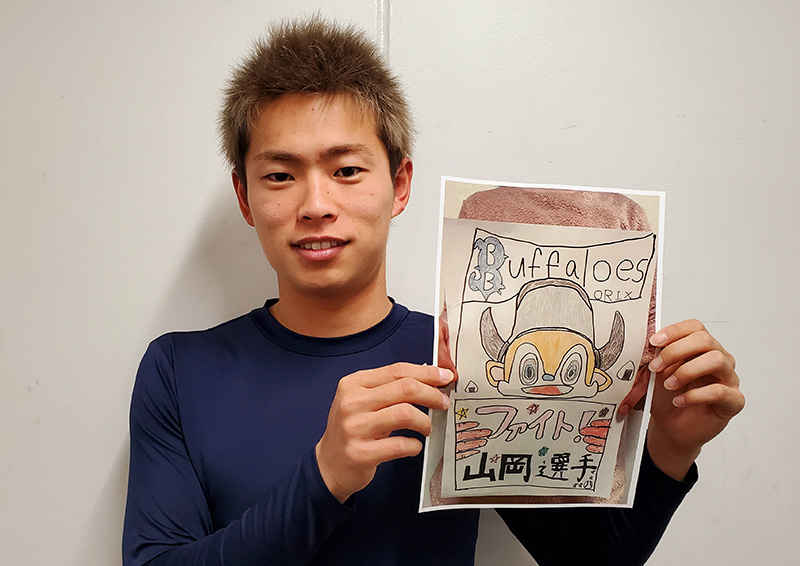 Buffaloes
ORIX
ファイト!
山岡選手